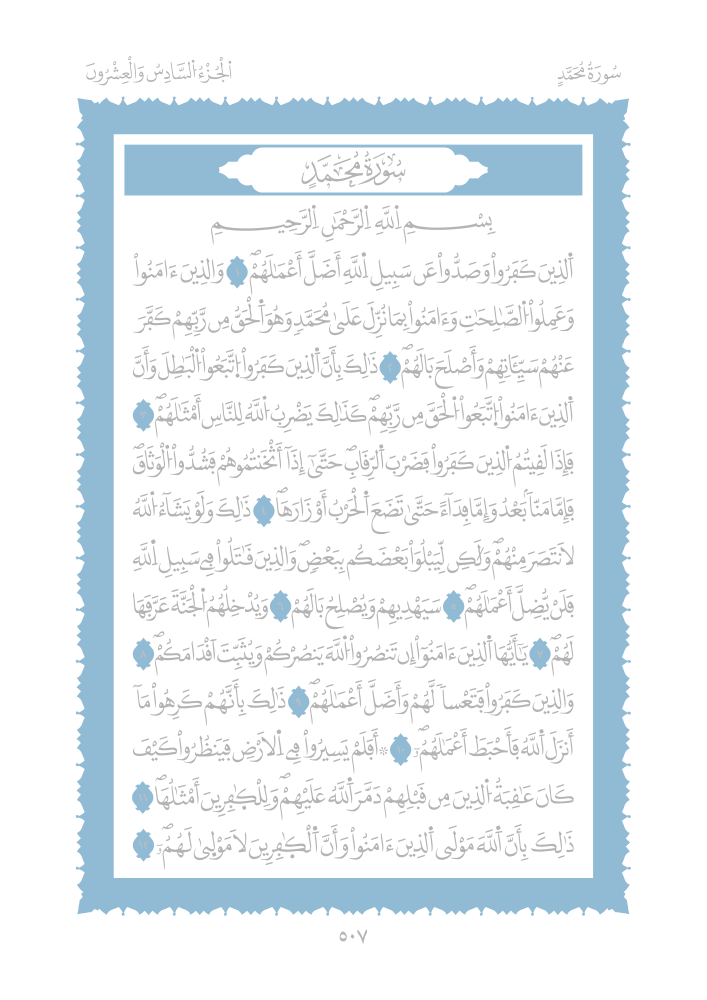 سُورَةُ مُحَمَّدٍ
اَلْجُزْءُ السَّادِسُ وَالْعِشْرُونَ
سُورَةُ مُحَمَّدٍ
بِسْمِ اِللَّهِ اِلرَّحْمَٰنِ اِلرَّحِيمِ
اَلذِينَ كَفَرُواْ وَصَدُّواْ عَن سَبِيلِ اِللَّهِ أَضَلَّ أَعْمَٰلَهُمْۖ ١ وَالذِينَ ءَامَنُواْ
وَعَمِلُواْ اُلصَّٰلِحَٰتِ وَءَامَنُواْ بِمَا نُزِّلَ عَلَىٰ مُحَمَّدٖ وَهُوَ اَلْحَقُّ مِن رَّبِّهِمْ كَفَّرَ
عَنْهُمْ سَيِّـَٔاتِهِمْ وَأَصْلَحَ بَالَهُمْۖ ٢ ذَٰلِكَ بِأَنَّ اَلذِينَ كَفَرُواْ اُتَّبَعُواْ اُلْبَٰطِلَ وَأَنَّ
اَلذِينَ ءَامَنُواْ اُتَّبَعُواْ اُلْحَقَّ مِن رَّبِّهِمْۖ كَذَٰلِكَ يَضْرِبُ اُللَّهُ لِلنَّاسِ أَمْثَٰلَهُمْۖ ٣
فَإِذَا لَقِيتُمُ اُلذِينَ كَفَرُواْ فَضَرْبَ اَلرِّقَابِۖ حَتَّىٰٓ إِذَآ أَثْخَنتُمُوهُمْ فَشُدُّواْ اُلْوَثَاقَۖ
فَإِمَّا مَنّاَۢ بَعْدُ وَإِمَّا فِدَآءً حَتَّىٰ تَضَعَ اَلْحَرْبُ أَوْزَارَهَاۖ ٤ ذَٰلِكَ وَلَوْ يَشَآءُ اُللَّهُ
لَانتَصَرَ مِنْهُمْۖ وَلَٰكِن لِّيَبْلُوَاْ بَعْضَكُم بِبَعْضٖۖ وَالذِينَ قَٰتَلُواْ فِے سَبِيلِ اِللَّهِ
فَلَنْ يُّضِلَّ أَعْمَٰلَهُمْۖ ٥ سَيَهْدِيهِمْ وَيُصْلِحُ بَالَهُمْۖ ٦ وَيُدْخِلُهُمُ اُلْجَنَّةَ عَرَّفَهَا
لَهُمْۖ ٧ يَٰٓأَيُّهَا اَلذِينَ ءَامَنُوٓاْ إِن تَنصُرُواْ اُللَّهَ يَنصُرْكُمْ وَيُثَبِّتَ اَقْدَامَكُمْۖ ٨
وَالذِينَ كَفَرُواْ فَتَعْساٗ لَّهُمْ وَأَضَلَّ أَعْمَٰلَهُمْۖ ٩ ذَٰلِكَ بِأَنَّهُمْ كَرِهُواْ مَآ
أَنزَلَ اَللَّهُ فَأَحْبَطَ أَعْمَٰلَهُمُۥٓۖ ١٠ ۞ أَفَلَمْ يَسِيرُواْ فِے اِلَارْضِ فَيَنظُرُواْ كَيْفَ
كَانَ عَٰقِبَةُ اُلذِينَ مِن قَبْلِهِمْ دَمَّرَ اَللَّهُ عَلَيْهِمْۖ وَلِلْكٰ۪فِرِينَ أَمْثَٰلُهَاۖ ١١
ذَٰلِكَ بِأَنَّ اَللَّهَ مَوْلَى اَلذِينَ ءَامَنُواْ وَأَنَّ اَلْكٰ۪فِرِينَ لَا مَوْلٜىٰ لَهُمُۥٓۖ ١٢
٥٠٧